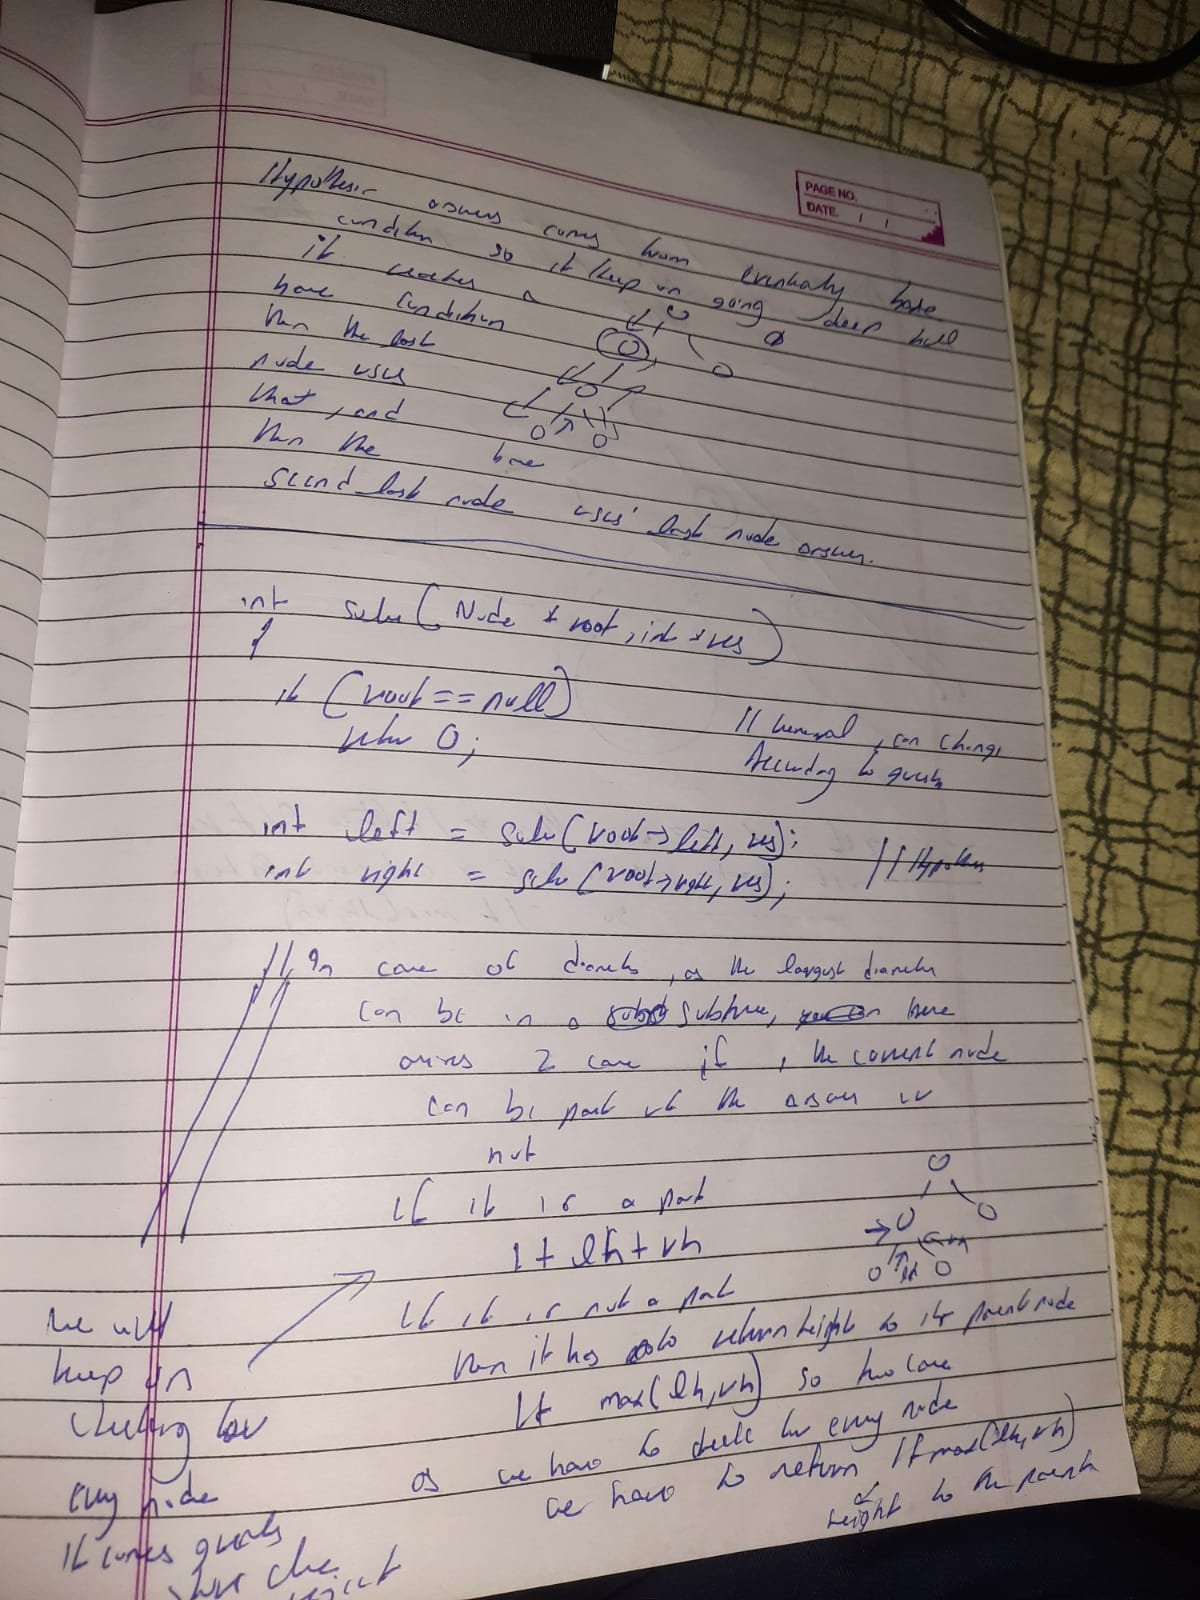 PAGE NO.
DATE / /
Hypothesis- answers comes from eventually base
condition so it keep on going deep till
it reaches a
base condition
then the last
node uses
that, and
then the base
second last node uses' last node answer.
int solve(Node * root, int *res)
{
if (root == null)
return 0;
// General, can change
According to questn
int left = solve(root->left, res);
int right = solve(root->right, res);
// Hypothes
// In case of diameter, as the largest diameter
can be in a subtree, here
arises 2 case if, the current node
can be part of the answer or
not
If it is a part
1 + lh + rh
rh
lh
If it is not a part
then it has to return height to its parent node
1+ max(lh, rh) so two case
as we have to check for every node
we have to return 1+max(lh, rh)
height to the parent
we will
keep on
checking for
every node
it comes greater
else